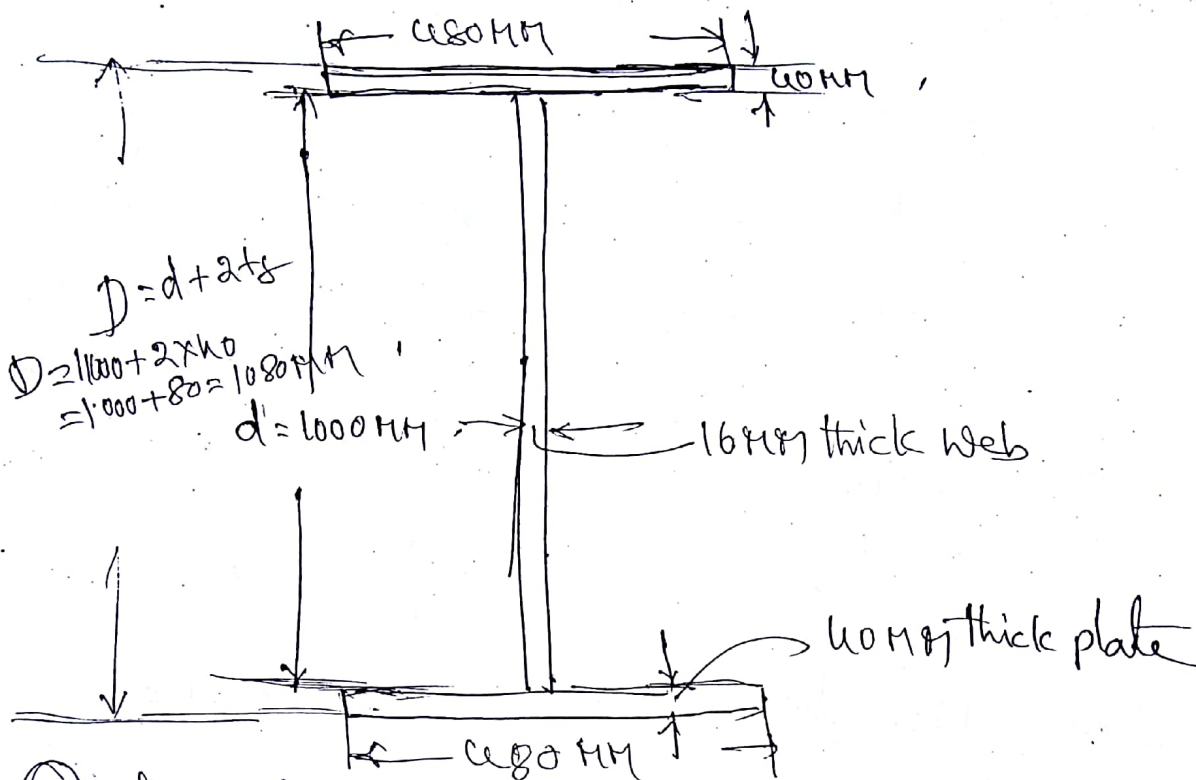 480 MM
40 MM ,
D = d + 2tf
D = 1000 + 2 x 40
= 1000 + 80 = 1080 MM
d = 1000 MM
16 MM thick web.
40 MM thick plate
480 MM